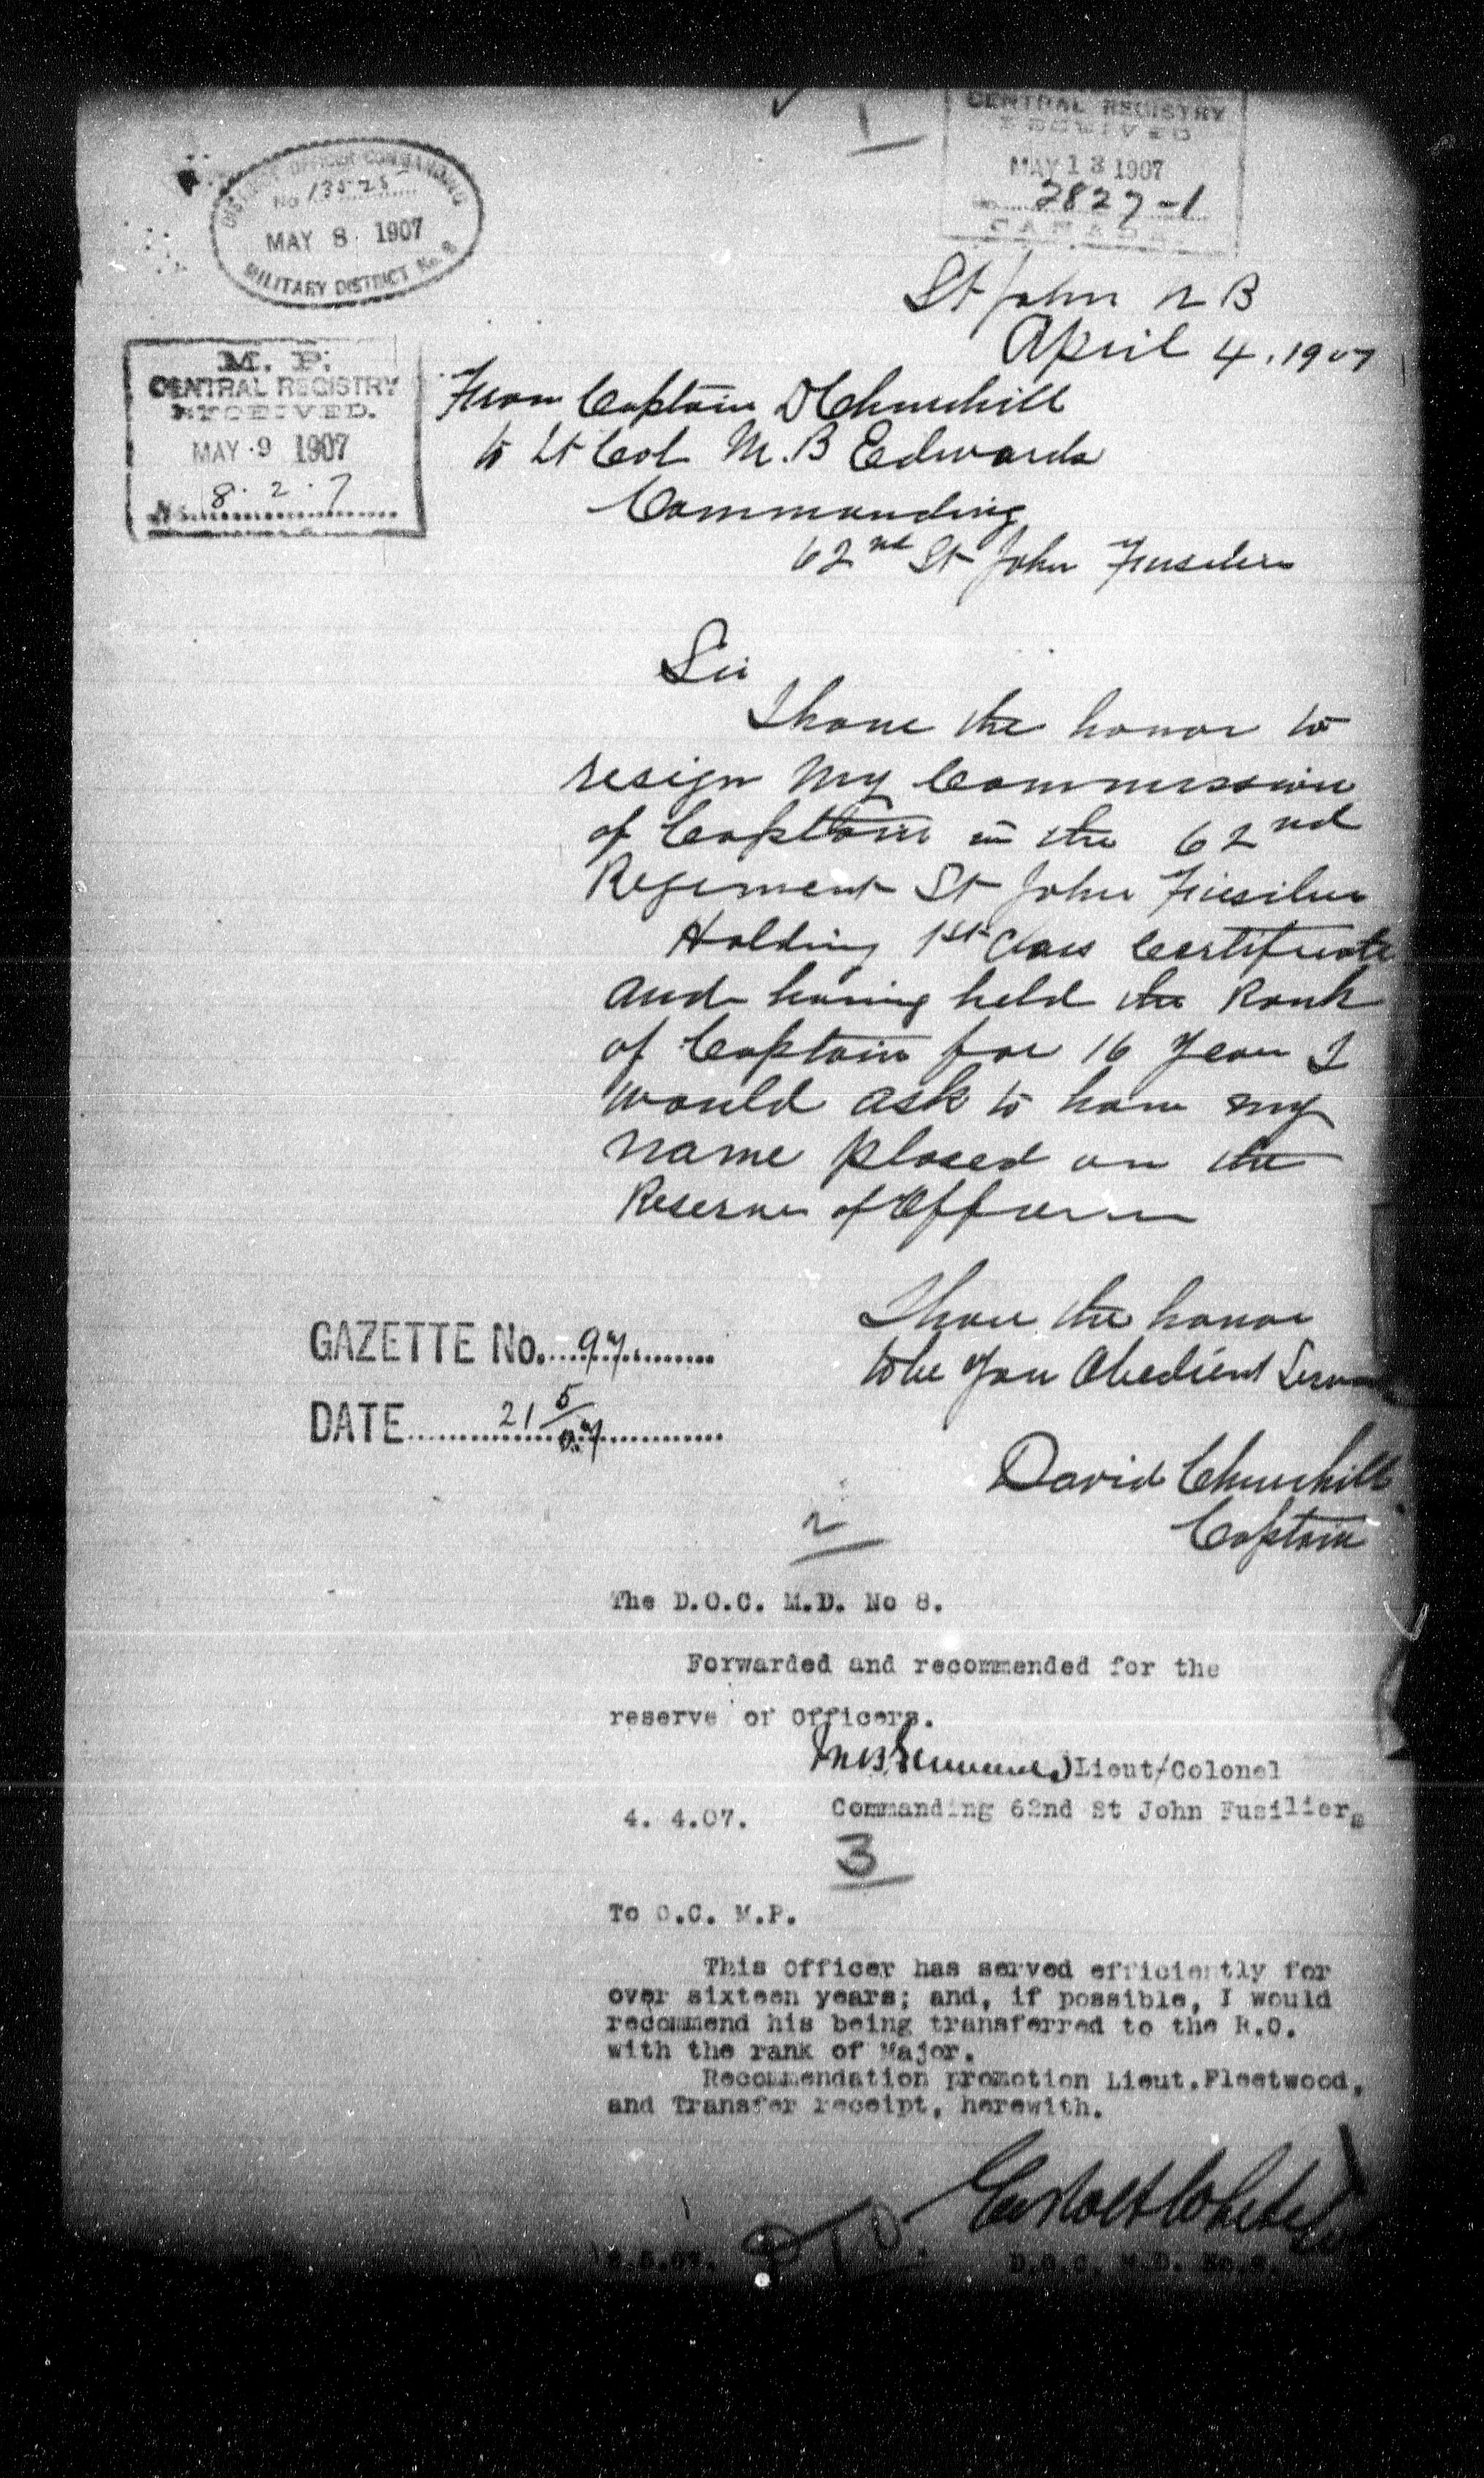 1
CENTRAL REGISTRY
RECEIVED
MAY 13 1907
2827-1
CANADA
DISTRICT OFFICER COMMANDING
No 13525
MAY 8 1907
MILITARY DISTRICT No. 8
St John N B
April 4, 1907
M. P.
CENTRAL REGISTRY
RECEIVED.
MAY 9 1907
No. 8.2.7
From Captain D Churchill
to Lt Col M. B Edwards
Commanding
62nd St John Fusiliers
Sir
I have the honor to
resign My Commission
of Captain in the 62nd
Regiment St John Fusiliers
Holding 1st Class Certificate
and having held the Rank
of Captain for 16 Years I
would ask to have my
name placed on the
Reserve of Officers
I have the honor
to be Your Obedient Servant
David Churchill
Captain
GAZETTE No. 97
DATE 21 5/07
2
The D.O.C. M.D. No 8.
Forwarded and recommended for the
reserve of Officers.
Lieut/Colonel
4. 4.07. Commanding 62nd St John Fusiliers
3
To C.C. M.P.
This officer has served efficiently for
over sixteen years; and, if possible, I would
recommend his being transferred to the R.O.
with the rank of Major.
Recommendation promotion Lieut.Fleetwood,
and Transfer receipt, herewith.
PTO.
8.5.07. D.O.C. M.D. No.8.